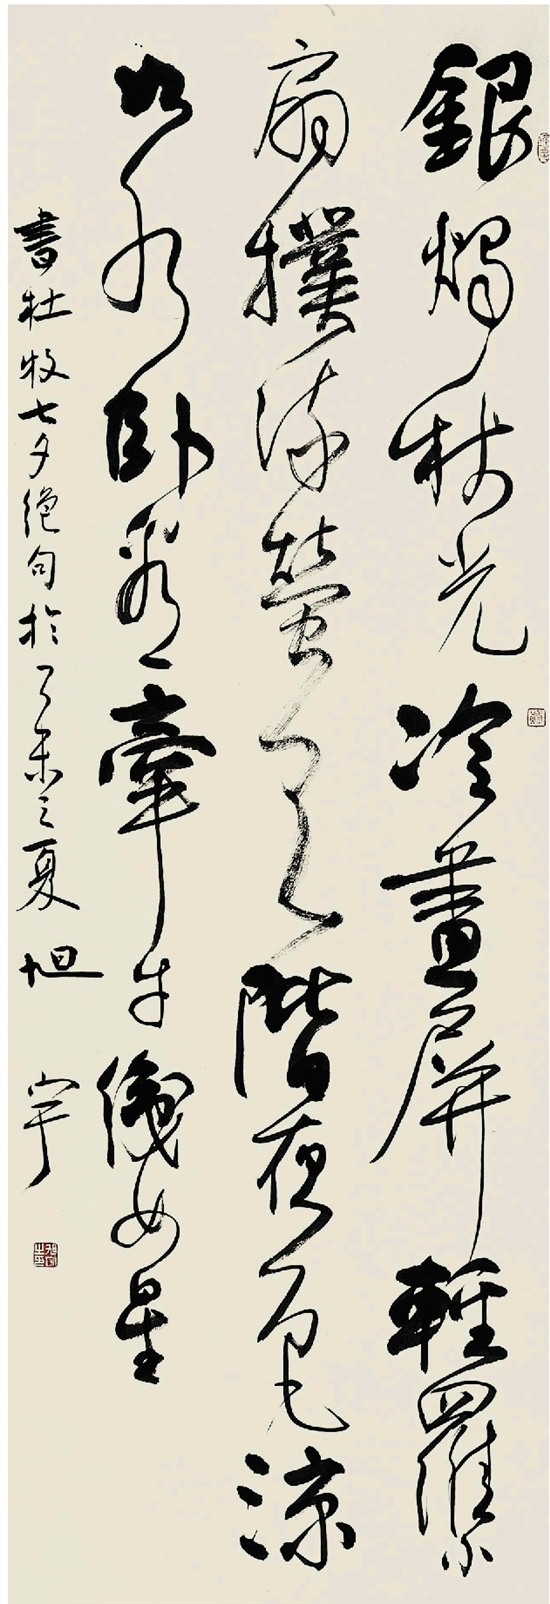 銀燭秋光冷畫屏輕羅小
扇撲流螢天階夜色涼
如水卧看牽牛織女星
書杜牧七夕絕句於乙未之夏 旭宇